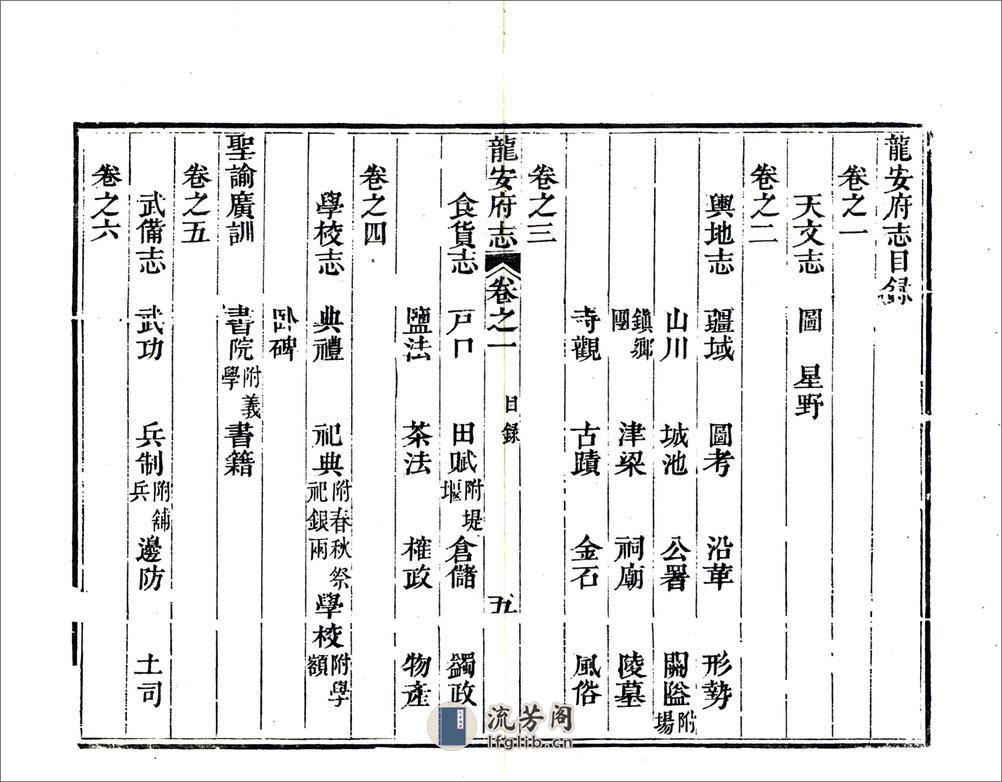 龍安府志目録
卷之一
天文志 圖 星野
卷之二
輿地志 疆域 圖考 沿革 形勢
山川 城池 公署 關隘附場
鎮鄉團 津梁 祠廟 陵墓
寺觀 古蹟 金石 風俗
卷之三
龍安府志 卷之一 目録 五
食貨志 戸口 田賦附堤堰 倉儲 蠲政
鹽法 茶法 榷政 物產
卷之四
學校志 典禮 祀典附春秋祭祀銀兩 學校附學額
卧碑
聖諭廣訓 書院附義學 書籍
卷之五
武備志 武功 兵制附舖兵 邊防 土司
卷之六
流芳阁
lfglib.cn